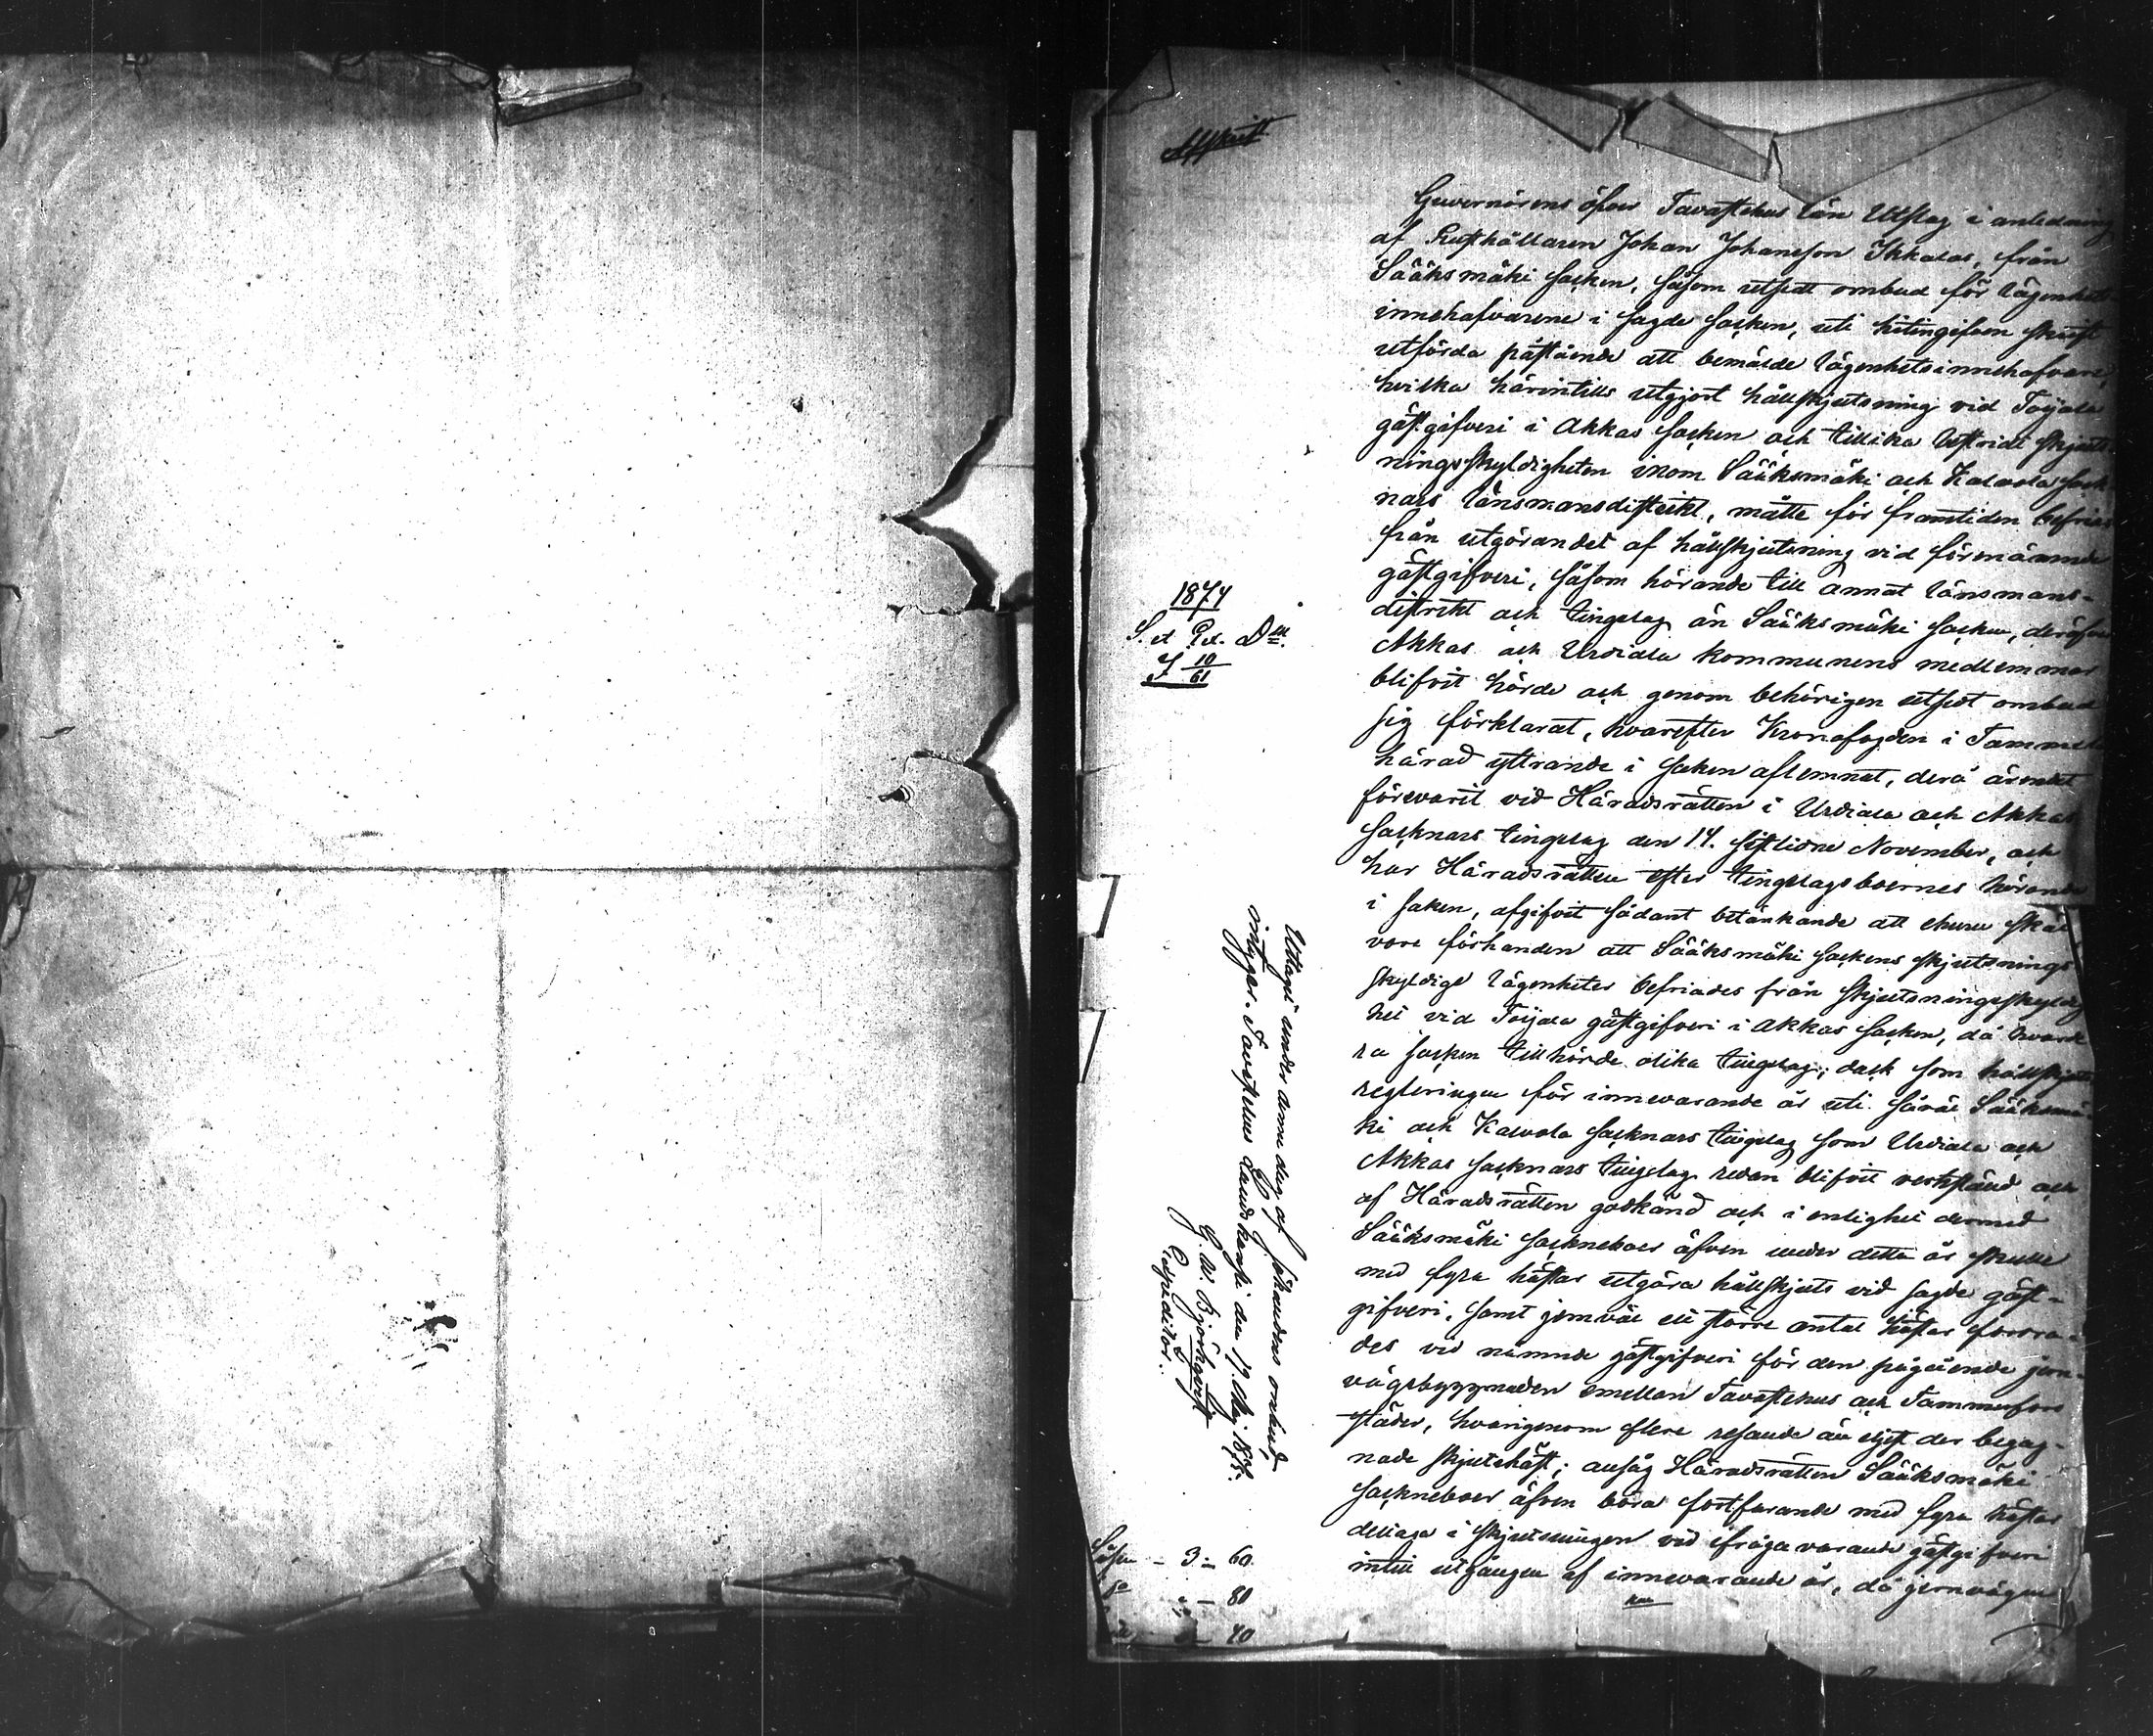 Afskrift
Guvernörens öfver Tavastehus län Utslag i anledning
af Rusthållaren Johan Johansson Ikkalas, från
Sääksmäki socken, såsom utsedt ombud för lägenhets
innehafvarene i sagde socken, uti hitingifven skrift
utförda påstående att bemälde lägenhetsinnehafvare,
hvilka härintills utgjort hållskjutsning vid Toijala
gästgifveri i Akkas socken och tillika bestridt skjuts
ningsskyldigheten inom Sääksmäki och Kalvola sock
nars länsmansdistrikt, måtte för framtiden befrias
från utgörandet af hållskjutsning vid förenämnde
gästgifveri, såsom hörande till annat länsmans-
distrikt och tingslag än Sääksmäki socken, deröfver
Akkas och Urdiala kommunens medlemmar
blifvit hörde och genom behörigen utsedt ombud
sig förklarat, hvarefter Kronofogden i Tammela
härad yttrande i saken aflemnat, derå ärendet
förevarit vid Häradsrätten i Urdiala och Akkas
socknars tingslag den 14. sistlidne November, och
har Häradsrätten efter tingslagsboernes hörande
i saken, afgifvit sådant betänkande att ehuru skäl
vore förhanden att Sääksmäki sockens skjutsnings
skyldige lägenheter befriades från skjutsningsskyldig
het vid Toijala gästgifveri i Akkas socken, då hvarde
ra socken tillhörde olika tingslag; dock som hållskjuts
regleringen för innevarande år uti såväl Sääksmä
ki och Kalvola socknars tingslag som Urdiala och
Akkas socknars tingslag redan blifvit verkställd och
af Häradsrätten godkänd och i enlighet dermed
Sääksmäki sockneboer äfven under detta år skulle
med fyra hästar utgöra hållskjuts vid sagde gäst-
gifveri, samt jemväl ett större antal hästar fordra-
des vid nämnde gästgifveri för den pågående jern-
vägsbyggnaden emellan Tavastehus och Tammerfors
städer, hvarigenom flere resande än eljest der begag-
nade skjutshäst; ansåg Häradsrätten Sääksmäki
sockneboer äfven böra fortfarande med fyra hästar
deltaga i skjutsningen vid ifrågavarande gästgifveri
intill utgången af innevarande år, då jernvägen
kan
1874
S. et Ex. D
I 10
61
Uttagit under denna dag af sökandenes ombud,
intygar. Tavastehus Landskansli den 17. Maj 1875.
G. W. Björkqvist
Expeditor.
Lösen - 3 - 60.
- 80
- 40